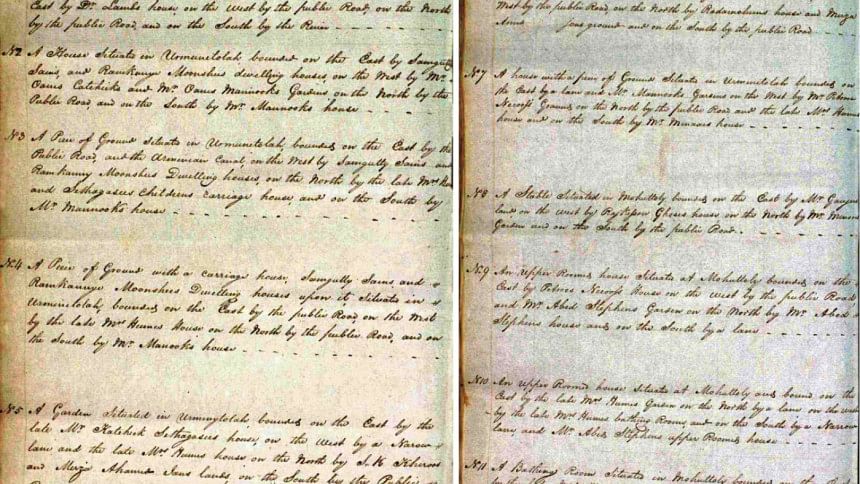 East by Dr. Lambs house, on the West by the public Road, on the North
by the public Road, and on the South by the River
No 2 A House Situate in Urmunetolah bounded on the East by Samgully
Sains, and Ramkanye Moonshees dwelling houses, on the West by Mr.
Oaues Catchick and Mr. Oaues Mannooks Gardens on the North by the
Public Road, and on the South by Mr. Mannooks house
No 3 A Piece of Ground situate in Urmunetolah, bounded on the East by the
Public Road, and the Armenian Canal, on the West by Samgully Sains and
Ramkanny Moonshees Dwelling houses, on the North by the late Mrs
and Sethagasees Childrens carriage house, and on the South by
Mr. Mannooks house
No 4 A Piece of Ground with a carriage house, Samgully Sains, and
Ramkannye Moonshees Dwelling houses upon it, Situate in
Urminetolah, bounded on the East by the public Road, on the West
by the late Mrs Humes House on the North by the public Road, and on
the South by Mr. Manooks house
No 5 A Garden Situated in Urminytolah, bounded on the East by the
late Mr. Katchick Sethagasees house, on the West by a Narow
lane and the late Mrs Humes house on the North by J. K.
and Mirza Ahamud Jans lands, on the South by the Public
West by the public Road, on the North by house and Mirza
ground and on the South by the public Road
No 7 A house with a piece of Ground Situate in Urminetolah bounded on
the East by a lane and Mr. Mannooks Gardens on the West by Mr.
Ground, on the North by the public Road and the late Mrs
house and on the South by Mr. Minasses house
No 8 A Stable Situated in Mohuttoly bounded on the East by Mr.
land on the West by house on the North by Mr.
Garden and on the South by the public Road
No 9 An Upper Roomed house Situate at Mohuttoly bounded on the
East by Petross House on the West by the public Road
and Mr. Abed Stephens Garden on the North by Mr. Abed
Stephens house and on the South by a lane
No 10 An upper Roomed house Situate at Mohuttoly and bound on the
East by the late Mrs Humes Garden on the North by a lane on the West
by the late Mrs Humes bathing Room, and on the South by a Narrow
lane, and Mr. Abed Stephens upper Roomed house
No 11 A Bathing Room Situated in Mohuttoly bounded on the